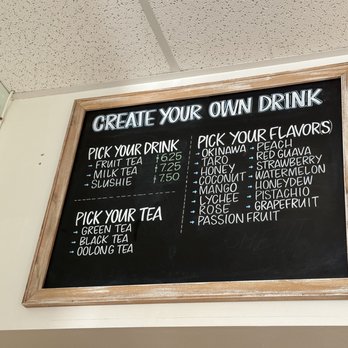 CREATE YOUR OWN DRINK
PICK YOUR DRINK
→ FRUIT TEA $6.25
→ MILK TEA $7.25
→ SLUSHIE $7.50
PICK YOUR TEA
→ GREEN TEA
→ BLACK TEA
→ OOLONG TEA
PICK YOUR FLAVOR(S)
→ OKINAWA
→ TARO
→ HONEY
→ COCONUT
→ MANGO
→ LYCHEE
→ ROSE
→ PASSION FRUIT
→ PEACH
→ RED GUAVA
→ STRAWBERRY
→ WATERMELON
→ HONEYDEW
→ PISTACHIO
→ GRAPEFRUIT